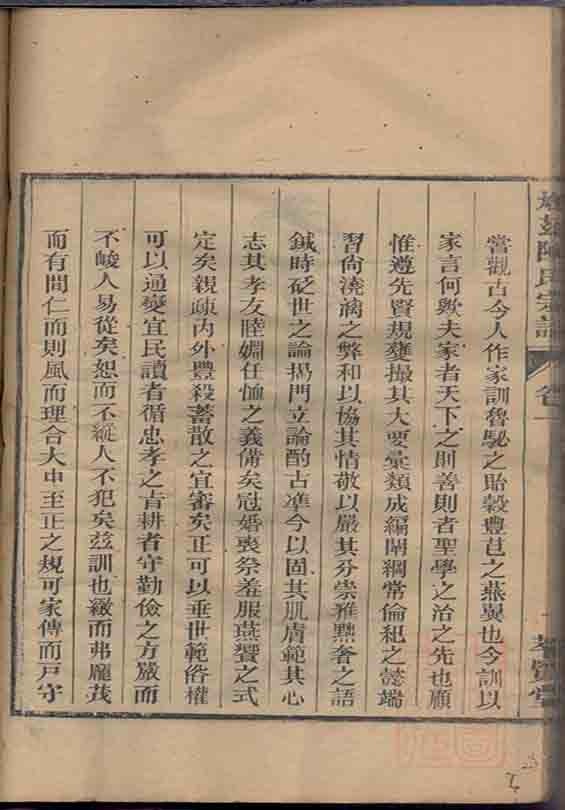 嘗觀古今人作家訓魯駜之貽穀豊芑之燕翼也今訓以
家言何歟夫家者天下之則善則者聖學之治之先也顧
惟遵先賢規蕹撮其大要彙類成編闡綱常倫紀之懿端
習尙澆漓之弊和以協其情敬以嚴其分崇雅黜奢之語
鍼時砭世之論揭門立論酌古凖今以固其肌膚範其心
志其孝友睦婣任恤之義備矣冠婚喪祭羞服燕饗之式
定矣親疎內外豐殺蓄散之宜審矣正可以垂世範俗權
可以通變宜民讀者循忠孝之肯耕者守勤儉之方嚴而
不峻人易從矣恕而不縱人不犯矣玆訓也緻而弗龐茂
而有間仁而則風而理合大中至正之規可家傳而戸守
陳氏宗譜 卷一
堂